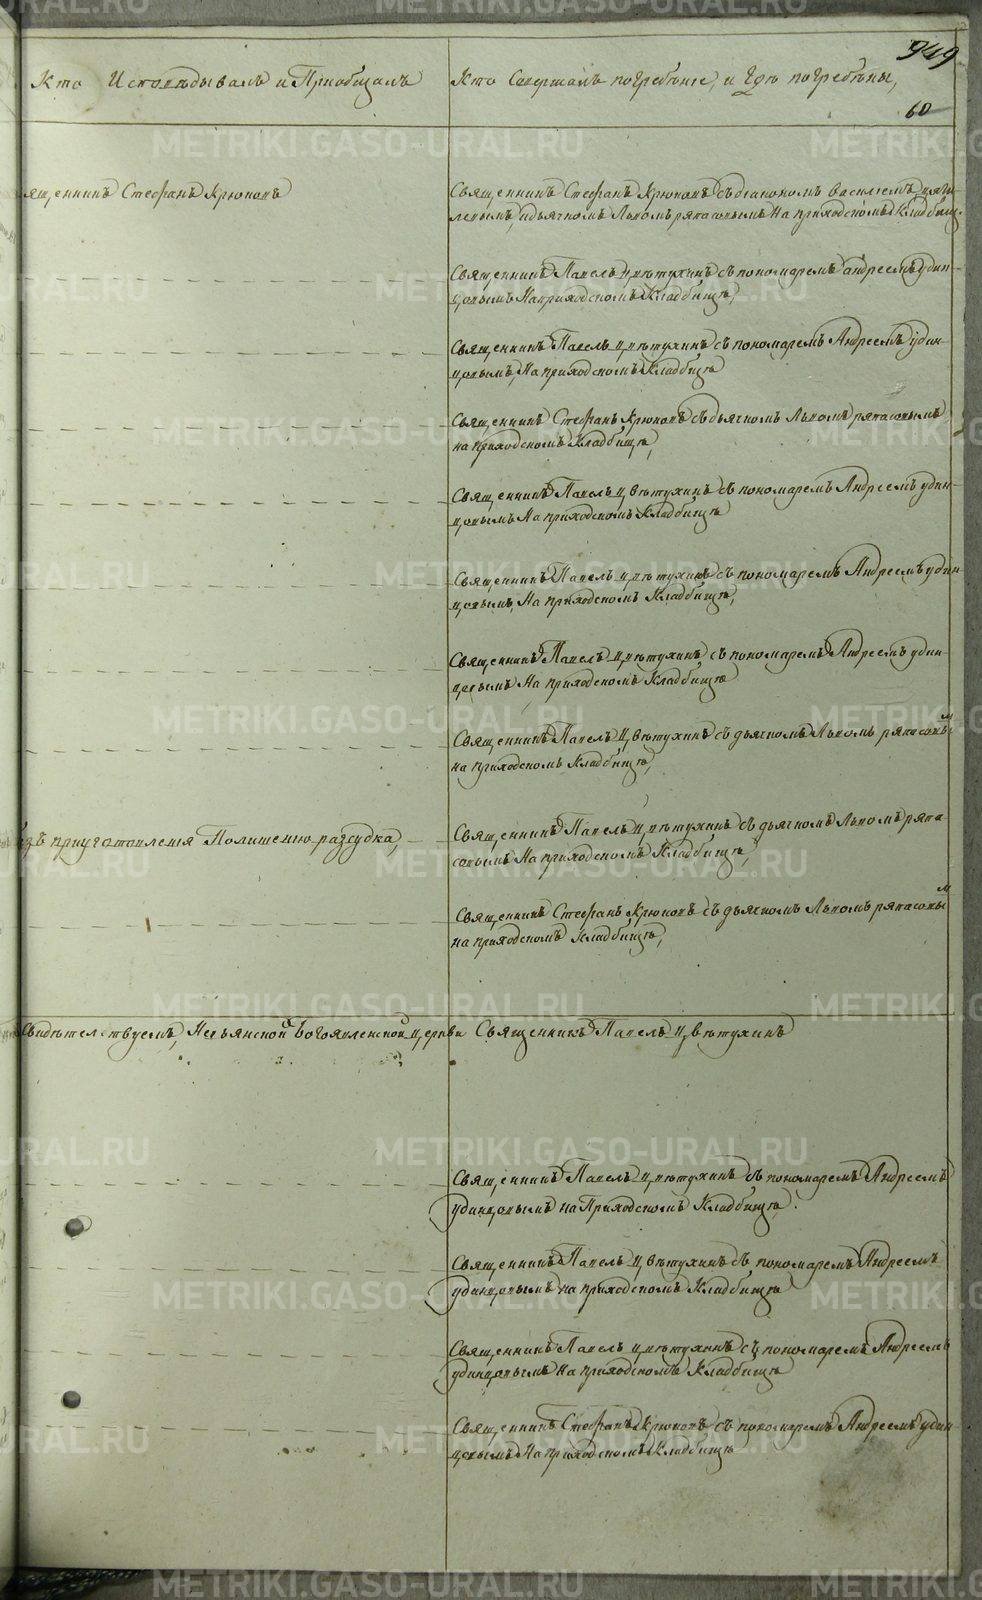 949
Кто Исповѣдывалъ и Приобщалъ
Кто Совершалъ погребѣніе, и Гдѣ погребѣны,
60
ященникъ Стефанъ Крюковъ
Священникъ Стефанъ Крюковъ съ діакономъ Василіемъ
и дьячкомъ Львомъ Ряпасовымъ На приходскомъ Кладбищ
Священникъ Павелъ Цвѣтухинъ съ пономаремъ андреемъ удин-
цовымъ На приходскомъ Кладбищѣ,
Священникъ Павелъ Цвѣтухинъ съ пономаремъ Андреемъ удин-
цовымъ, На приходскомъ Кладбищѣ
Священникъ Стефанъ Крюковъ съ дьячкомъ Львомъ ряпасовымъ
на приходскомъ Кладбищѣ,
Священникъ Павелъ Цвѣтухинъ съ пономаремъ Андреемъ удин-
цовымъ На приходскомъ Кладбищѣ
Священникъ Павелъ Цвѣтухинъ съ пономаремъ Андреемъ удин
цовымъ, На приходскомъ Кладбищѣ,
Священникъ Павелъ Цвѣтухинъ съ пономаремъ Андреемъ удин-
цовымъ На приходскомъ Кладбищѣ
Священникъ Павелъ Цвѣтухинъ съ дьячкомъ Львомъ ряпасовым
на приходскомъ Кладбищѣ,
зъ приуготовленія Полишенію разсудка
Священникъ Павелъ Цвѣтухинъ съ дьячкомъ Львомъ ряпа
совымъ На приходскомъ Кладбищѣ,
Священникъ Стефанъ Крюковъ съ дьячкомъ Львомъ ряпасовым
на приходскомъ Кладбищѣ,
Свидѣтелствуемъ, Невьянской Богоявленской церкви Священникъ Павелъ Цвѣтухинъ
Священникъ Павелъ Цвѣтухинъ съ пономаремъ Андреемъ
удинцовымъ на Приходскомъ Кладбищѣ.
Священникъ Павелъ Цвѣтухинъ съ пономаремъ Андреемъ
удинцовымъ на приходскомъ Кладбищѣ
Священникъ Павелъ Цвѣтухинъ съ пономаремъ Андреемъ
удинцовымъ На приходскомъ Кладбищѣ
Священникъ Стефанъ Крюковъ съ пономаремъ Андреемъ удин
цовымъ На приходскомъ Кладбищѣ
METRIKI.GASO-URAL.RU